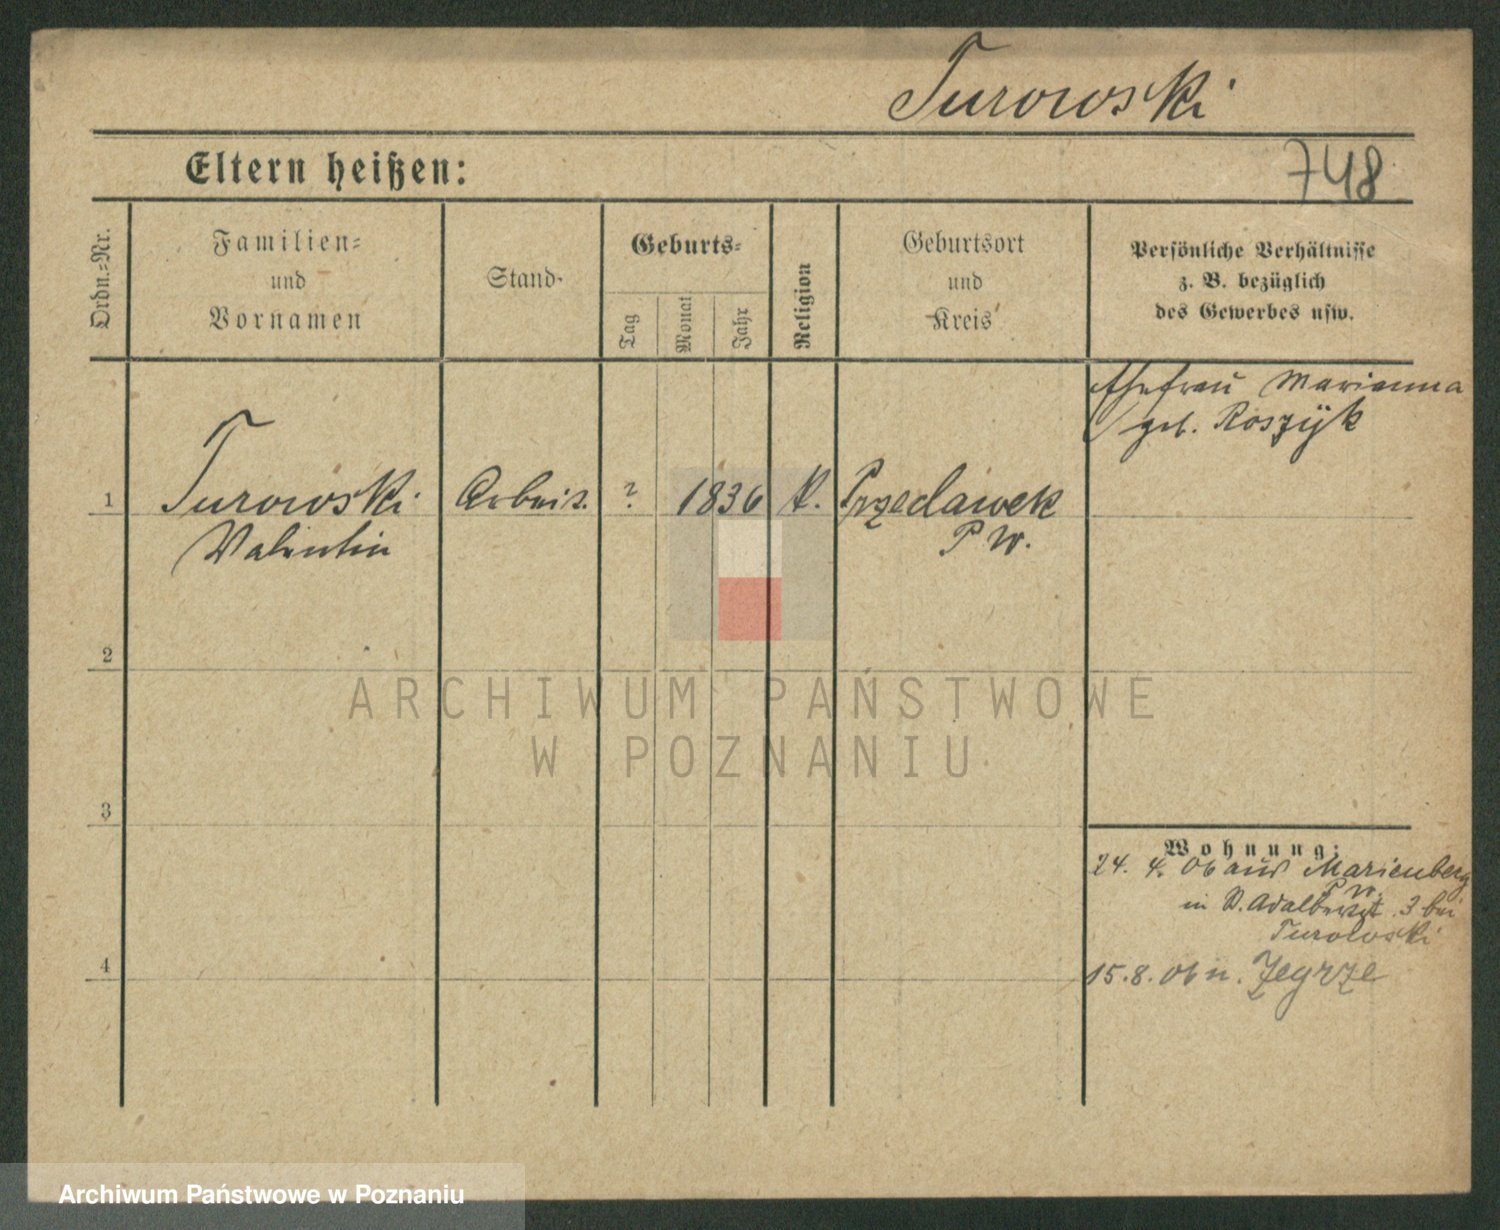 Turowski
Eltern heißen:
748
Ordn.-Nr.
Familien-
und
Vornamen
Stand
Geburts-
Tag
Monat
Jahr
Religion
Geburtsort
und
Kreis
Persönliche Verhältnisse
z. B. bezüglich
des Gewerbes usw.
Ehefrau Marianna
geb. Roszÿk
1
Turowski
Arbeit.
?
1836
K.
Przeclawek
Valentin
P W.
2
ARCHIWUM PAŃSTWOWE
W POZNANIU
3
Wohnung:
24. 4. 06 aus Marienberg
P W.
in St. Adalbertst. 3 bei
Turowski
4
15.8.06 n. Zegrze
Archiwum Państwowe w Poznaniu